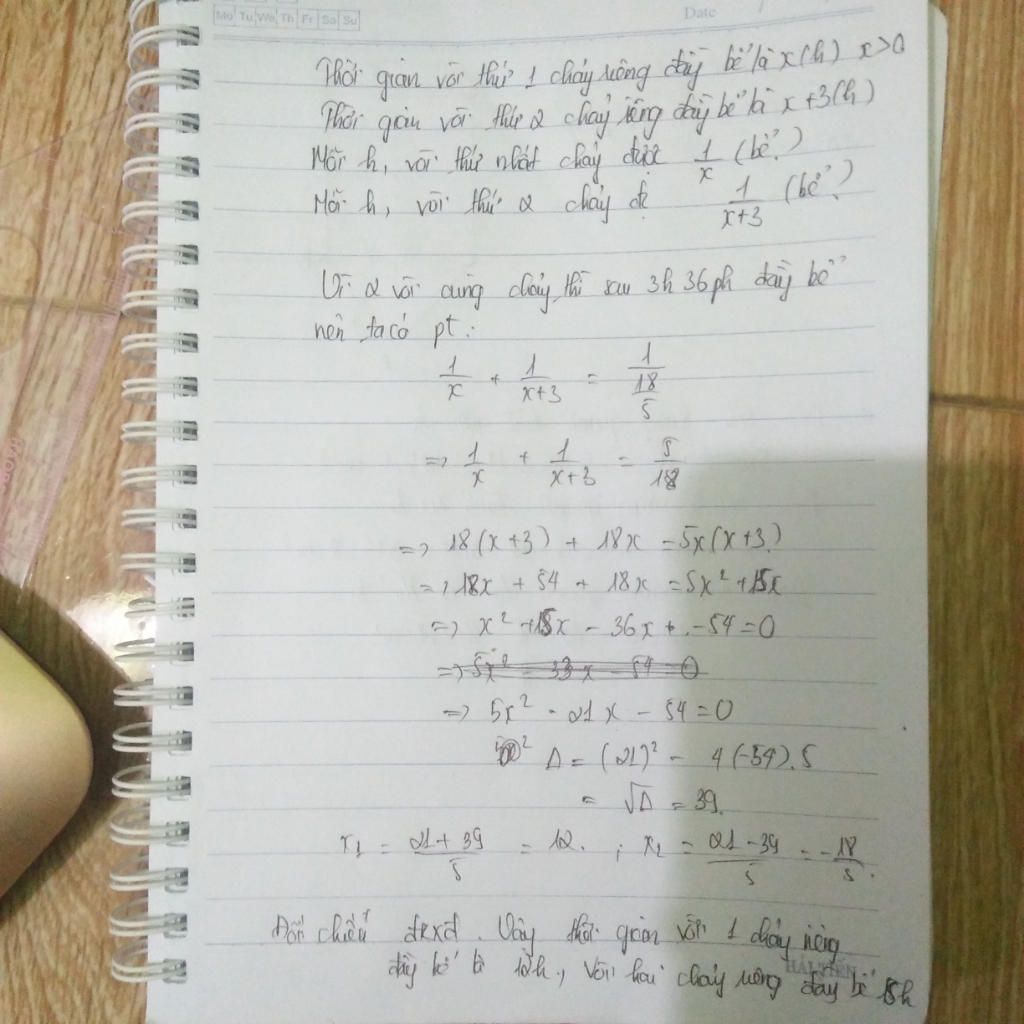 Mo Tu We Th Fr Sa Su
Date
Thời gian vòi thứ 1 chảy riêng đầy bể là x(h) x>0
Thời gian vòi thứ 2 chảy riêng đầy bể là x+3(h)
Mỗi h, vòi thứ nhất chảy được 1/x (bể)
Mỗi h, vòi thứ 2 chảy đc 1/(x+3) (bể)
Vì 2 vòi cùng chảy thì sau 3h 36ph đầy bể
nên ta có pt:
1/x + 1/(x+3) = 1/(18/5)
=> 1/x + 1/(x+3) = 5/18
=> 18(x+3) + 18x = 5x(x+3)
=> 18x + 54 + 18x = 5x² + 15x
=> x² + 15x - 36x + -54 = 0
=> 5x² - 33x - 54 = 0
=> 5x² - 21x - 54 = 0
Δ = (21)² - 4(-54).5
= √Δ = 39
x₁ = (21+39)/5 = 12. ; x₂ = (21-39)/5 = -18/5.
Đối chiếu đkxđ. Vậy thời gian vòi 1 chảy riêng
HẢI TIẾN
đầy bể là 12h, vòi hai chảy riêng đầy bể 15h